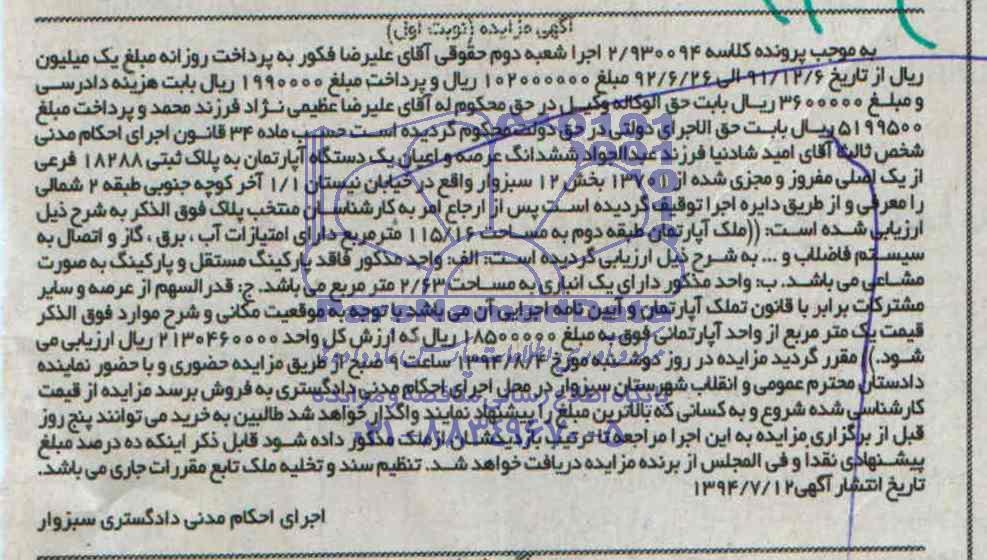 آگهی مزایده (نوبت اول)
به موجب پرونده کلاسه ۲/۹۳۰۰۹۴ اجرا شعبه دوم حقوقی آقای علیرضا فکور به پرداخت روزانه مبلغ یک میلیون
ریال از تاریخ ۹۱/۱۲/۶ الی ۹۲/۶/۲۶ مبلغ ۱۰۲۰۰۰۰۰۰ ریال و پرداخت مبلغ ۱۹۹۰۰۰۰ ریال بابت هزینه دادرسی
و مبلغ ۳۶۰۰۰۰۰ ریال بابت حق الوکاله وکیل در حق محکوم له آقای علیرضا عظیمی نژاد فرزند محمد و پرداخت مبلغ
۵۱۹۹۵۰۰ ریال بابت حق الاجرای دولتی در حق دولت محکوم گردیده است حسب ماده ۳۴ قانون اجرای احکام مدنی
شخص ثالث آقای امید شادنیا فرزند عبدالجواد ششدانگ عرصه و اعیان یک دستگاه آپارتمان به پلاک ثبتی ۱۸۲۸۸ فرعی
از یک اصلی مفروز و مجزی شده از ۱۳۷۰۱ بخش ۱۲ سبزوار واقع در خیابان نیستان ۱/۱ آخر کوچه جنوبی طبقه ۲ شمالی
را معرفی و از طریق دایره اجرا توقیف گردیده است پس از ارجاع امر به کارشناسان منتخب پلاک فوق الذکر به شرح ذیل
ارزیابی شده است: ((ملک آپارتمان طبقه دوم به مساحت ۱۱۵/۱۶ متر مربع دارای امتیازات آب ، برق ، گاز و اتصال به
سیستم فاضلاب و ... به شرح ذیل ارزیابی گردیده است: الف: واحد مذکور فاقد پارکینگ مستقل و پارکینگ به صورت
مشاعی می باشد. ب: واحد مذکور دارای یک انباری به مساحت ۲/۶۳ متر مربع می باشد. ج: قدرالسهم از عرصه و سایر
مشترکات برابر با قانون تملک آپارتمان و آیین نامه اجرایی آن می باشد با توجه به موقعیت مکانی و شرح موارد فوق الذکر
قیمت یک متر مربع از واحد آپارتمانی فوق به مبلغ ۱۸۵۰۰۰۰۰ ریال که ارزش کل واحد ۲۱۳۰۴۶۰۰۰۰ ریال ارزیابی می
شود.)) مقرر گردید مزایده در روز دوشنبه مورخ ۱۳۹۴/۸/۴ ساعت ۹ صبح از طریق مزایده حضوری و با حضور نماینده
دادستان محترم عمومی و انقلاب شهرستان سبزوار در محل اجرای احکام مدنی دادگستری به فروش برسد مزایده از قیمت
کارشناسی شده شروع و به کسانی که بالاترین مبلغ را پیشنهاد نمایند واگذار خواهد شد طالبین به خرید می توانند پنج روز
قبل از برگزاری مزایده به این اجرا مراجعه تا ترتیب بازدیدشان از ملک مذکور داده شود قابل ذکر اینکه ده درصد مبلغ
پیشنهادی نقدا و فی المجلس از برنده مزایده دریافت خواهد شد. تنظیم سند و تخلیه ملک تابع مقررات جاری می باشد.
تاریخ انتشار آگهی ۱۳۹۴/۷/۱۲
اجرای احکام مدنی دادگستری سبزوار
پایگاه اطلاع رسانی مناقصه و مزایده